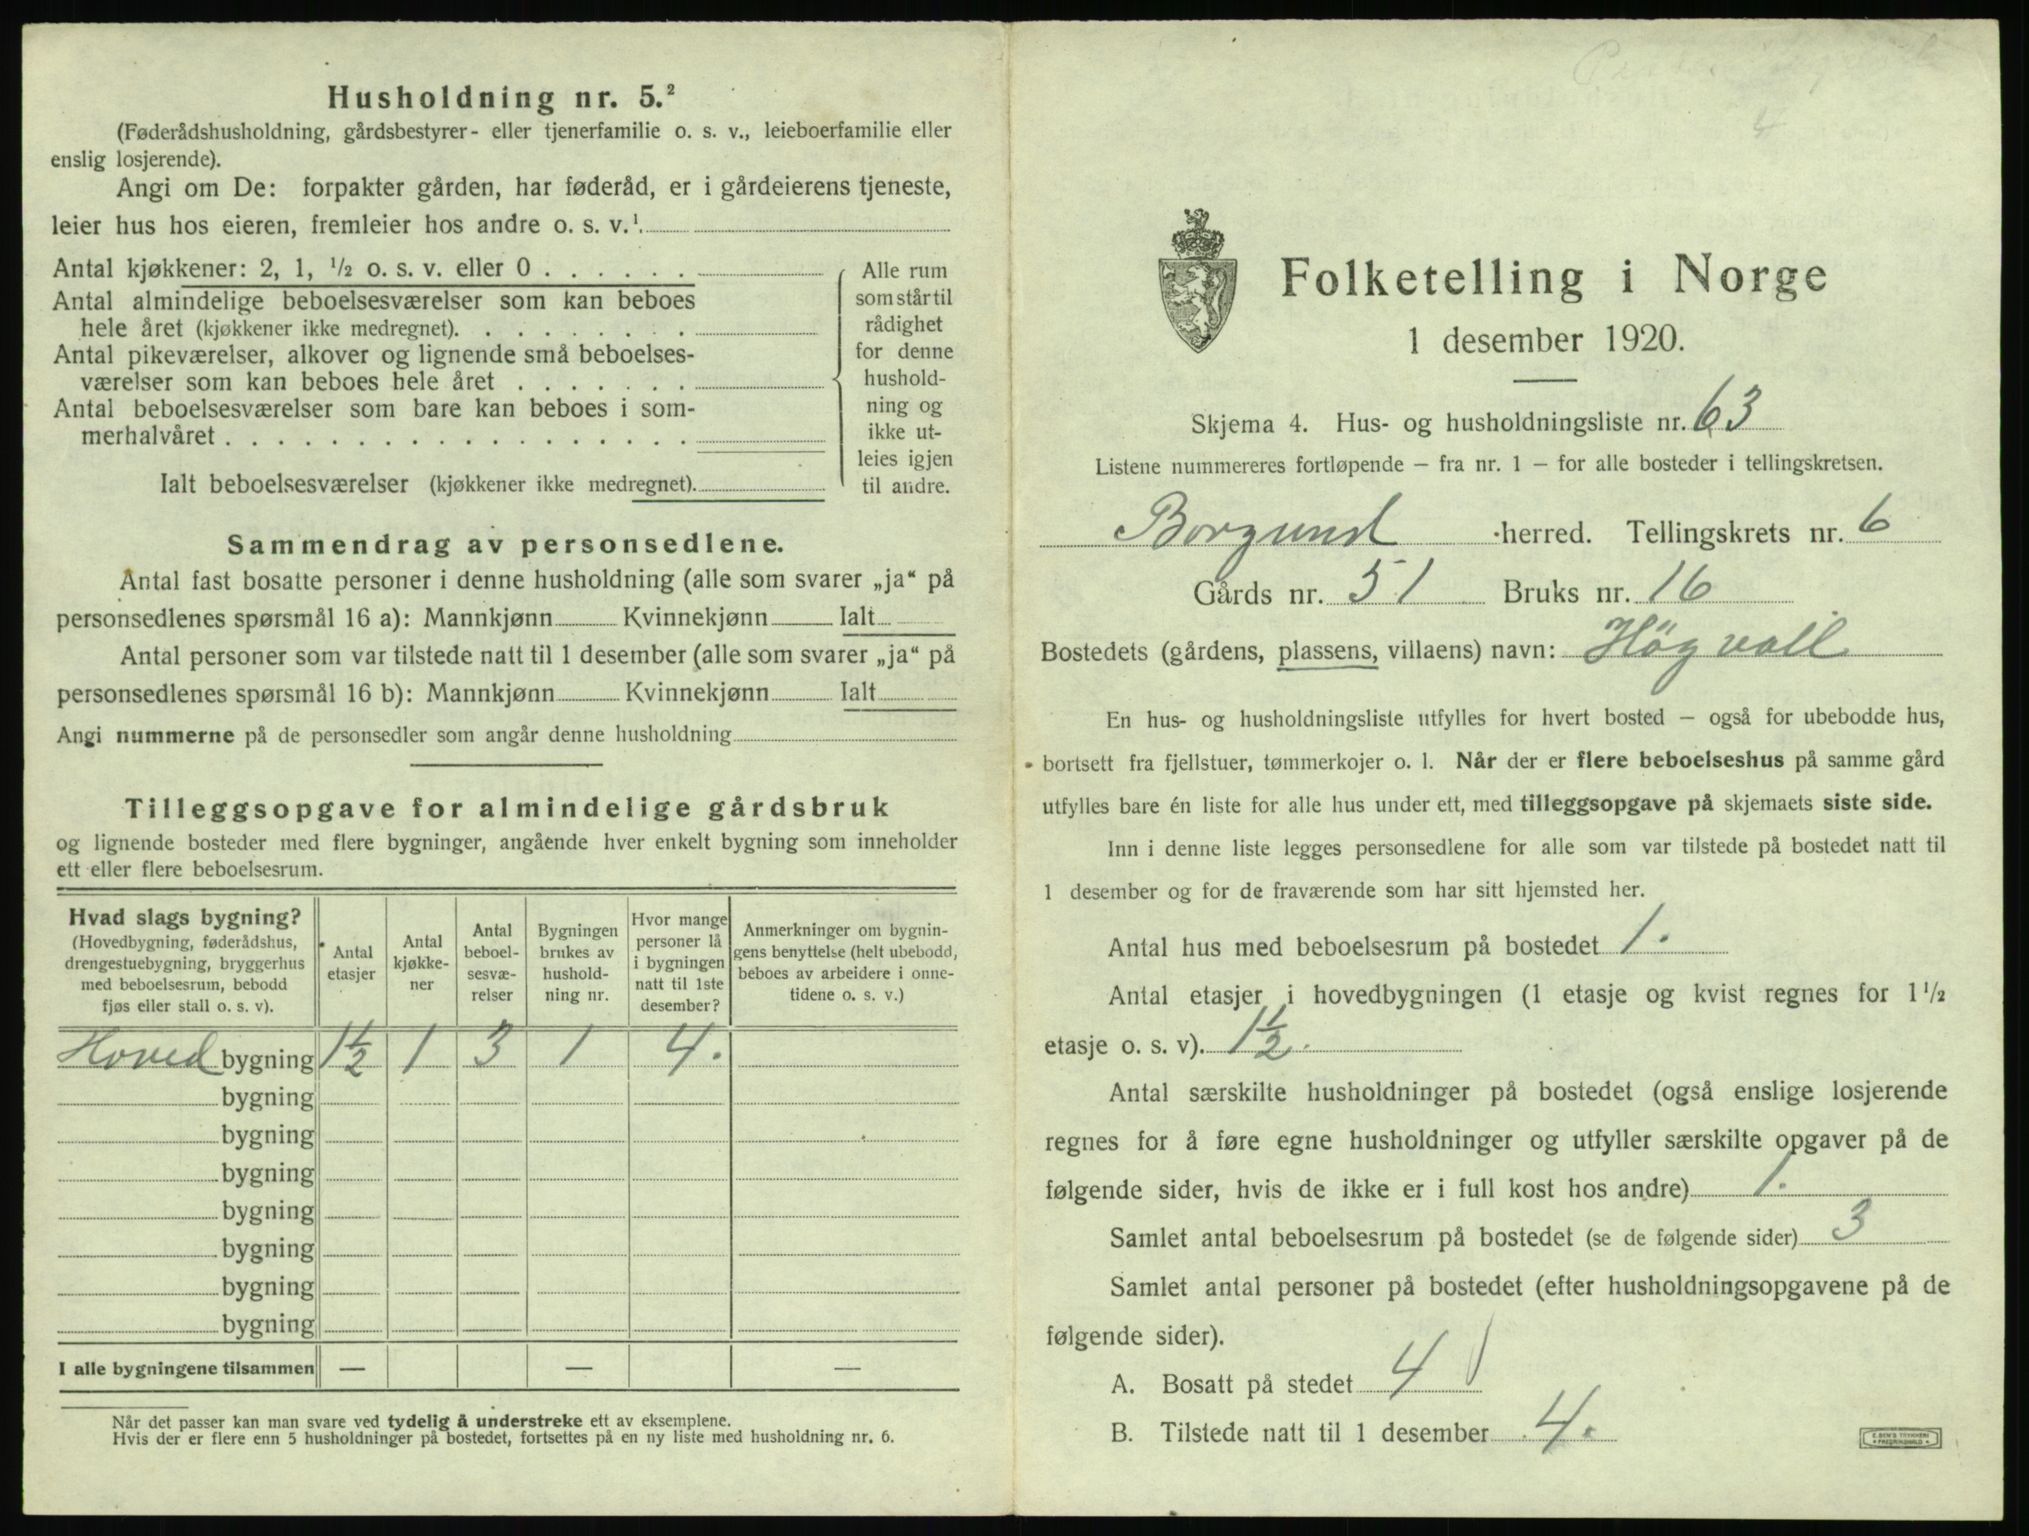 Husholdning nr. 5.²
(Føderådshusholdning, gårdsbestyrer- eller tjenerfamilie o. s. v., leieboerfamilie eller
enslig losjerende).
Angi om De: forpakter gården, har føderåd, er i gårdeierens tjeneste,
leier hus hos eieren, fremleier hos andre o. s. v.¹
Antal kjøkkener: 2, 1, ½ o. s. v. eller 0 . . . . . .
Antal almindelige beboelsesværelser som kan beboes
hele året (kjøkkener ikke medregnet). . . . . . . . .
Antal pikeværelser, alkover og lignende små beboelses-
værelser som kan beboes hele året . . . . . . .
Antal beboelsesværelser som bare kan beboes i som-
merhalvåret . . . . . . . . . . . . . . . . . .
Ialt beboelsesværelser (kjøkkener ikke medregnet).
Alle rum
som står til
rådighet
for denne
hushold-
ning og
ikke ut-
leies igjen
til andre.
Sammendrag av personsedlene.
Antal fast bosatte personer i denne husholdning (alle som svarer „ja“ på
personsedlenes spørsmål 16 a): Mannkjønn Kvinnekjønn Ialt
Antal personer som var tilstede natt til 1 desember (alle som svarer „ja“ på
personsedlenes spørsmål 16 b): Mannkjønn Kvinnekjønn Ialt
Angi nummerne på de personsedler som angår denne husholdning
Tilleggsopgave for almindelige gårdsbruk
og lignende bosteder med flere bygninger, angående hver enkelt bygning som inneholder
ett eller flere beboelsesrum.
Hvad slags bygning?
(Hovedbygning, føderådshus,
drengestuebygning, bryggerhus
med beboelsesrum, bebodd
fjøs eller stall o. s. v).
Antal
etasjer
Antal
kjøkke-
ner
Antal
beboel-
sesvæ-
relser
Bygningen
brukes av
hushold-
ning nr.
Hvor mange
personer lå
i bygningen
natt til 1ste
desember?
Anmerkninger om bygnin-
gens benyttelse (helt ubebodd,
beboes av arbeidere i onne-
tidene o. s. v.)
Hoved bygning 1½ 1 3 1 4.
bygning
bygning
bygning
bygning
bygning
bygning
bygning
I alle bygningene tilsammen — — —
Når det passer kan man svare ved tydelig å understreke ett av eksemplene.
Hvis der er flere enn 5 husholdninger på bostedet, fortsettes på en ny liste med husholdning nr. 6.
4
Folketelling i Norge
1 desember 1920.
Skjema 4. Hus- og husholdningsliste nr. 63
Listene nummereres fortløpende – fra nr. 1 – for alle bosteder i tellingskretsen.
Borgund herred. Tellingskrets nr. 6
Gårds nr. 51 Bruks nr. 16
Bostedets (gårdens, plassens, villaens) navn: Högvoll
En hus- og husholdningsliste utfylles for hvert bosted – også for ubebodde hus,
bortsett fra fjellstuer, tømmerkojer o. l. Når der er flere beboelseshus på samme gård
utfylles bare én liste for alle hus under ett, med tilleggsopgave på skjemaets siste side.
Inn i denne liste legges personsedlene for alle som var tilstede på bostedet natt til
1 desember og for de fraværende som har sitt hjemsted her.
Antal hus med beboelsesrum på bostedet 1.
Antal etasjer i hovedbygningen (1 etasje og kvist regnes for 1½
etasje o. s. v). 1½.
Antal særskilte husholdninger på bostedet (også enslige losjerende
regnes for å føre egne husholdninger og utfyller særskilte opgaver på de
følgende sider, hvis de ikke er i full kost hos andre) 1.
Samlet antal beboelsesrum på bostedet (se de følgende sider) 3
Samlet antal personer på bostedet (efter husholdningsopgavene på de
følgende sider).
A. Bosatt på stedet 4
B. Tilstede natt til 1 desember 4.